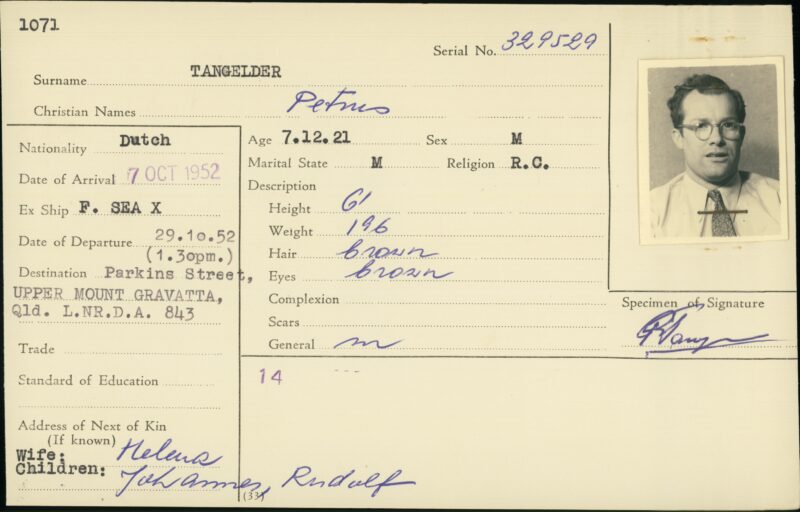 1071
Serial No. 329529
Surname TANGELDER
Christian Names Petrus
Nationality Dutch
Date of Arrival 7 OCT 1952
Ex Ship F. SEA X
Date of Departure 29.10.52
(1.30pm.)
Destination Parkins Street,
UPPER MOUNT GRAVATTA,
Qld. L.NR.D.A. 843
Trade
Standard of Education
Address of Next of Kin
(If known)
Wife: Helena
Children: Johannes, Rudolf
Age 7.12.21 Sex M
Marital State M Religion R.C.
Description
Height 6'
Weight 196
Hair brown
Eyes brown
Complexion
Scars
General m
14
(33)
Specimen of Signature